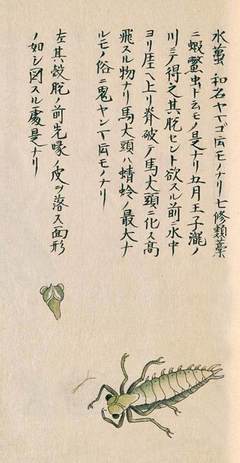 水蠆 和名ヤマゴ𪜈モノナリ七修類藁
ニ蝦鱉虫ト云モノ是ナリ五月王子瀧ノ
川ニテ得之其脱セント欲スル前ニ水中
ヨリ崖ヘ上リ莾破テ馬大頭ニ化ス高
飛スル物ナリ馬大頭ハ蜻蛉ノ最大ナ
ルモノ俗ニ鬼ヤンマ𪜈モノナリ
左其殻脱ノ前先喙ノ皮ヲ落ス面形
ノ如シ図スル處是ナリ